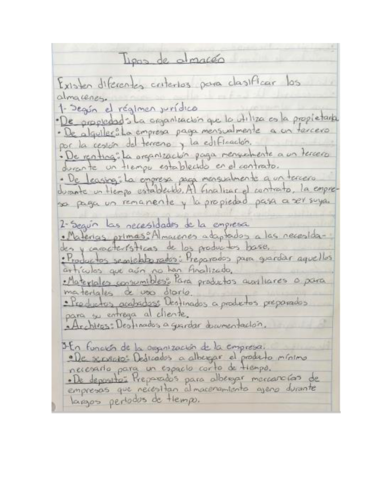 Tipos de almacén
Existen diferentes criterios para clasificar los
almacenes.
1- Según el régimen jurídico
• De propiedad: La organización que lo utiliza es la propietaria
• De alquiler: La empresa paga mensualmente a un tercero
por la cesión del terreno y la edificación.
• De renting: La organización paga mensualmente a un tercero
durante un tiempo establecido en el contrato.
• De leasing: La empresa paga mensualmente a un tercero
durante un tiempo establecido. Al finalizar el contrato, la empre-
sa paga un remanente y la propiedad pasa a ser suya.
2- Según las necesidades de la empresa
• Materias primas: Almacenes adaptados a las necesida-
des y características de los productos base.
• Productos semielaborados: Preparados para guardar aquellos
artículos que aún no han finalizado.
• Materiales consumibles: Para productos auxiliares o para
materiales de uso diario.
• Productos acabados: Destinados a productos preparados
para su entrega al cliente.
• Archivos: Destinados a guardar documentación.
3- En función de la organización de la empresa:
• De servicio: Dedicados a albergar el producto mínimo
necesario para un espacio corto de tiempo.
• De depósito: Preparados para albergar mercancías de
empresas que necesitan almacenamiento ajeno durante
largos periodos de tiempo.